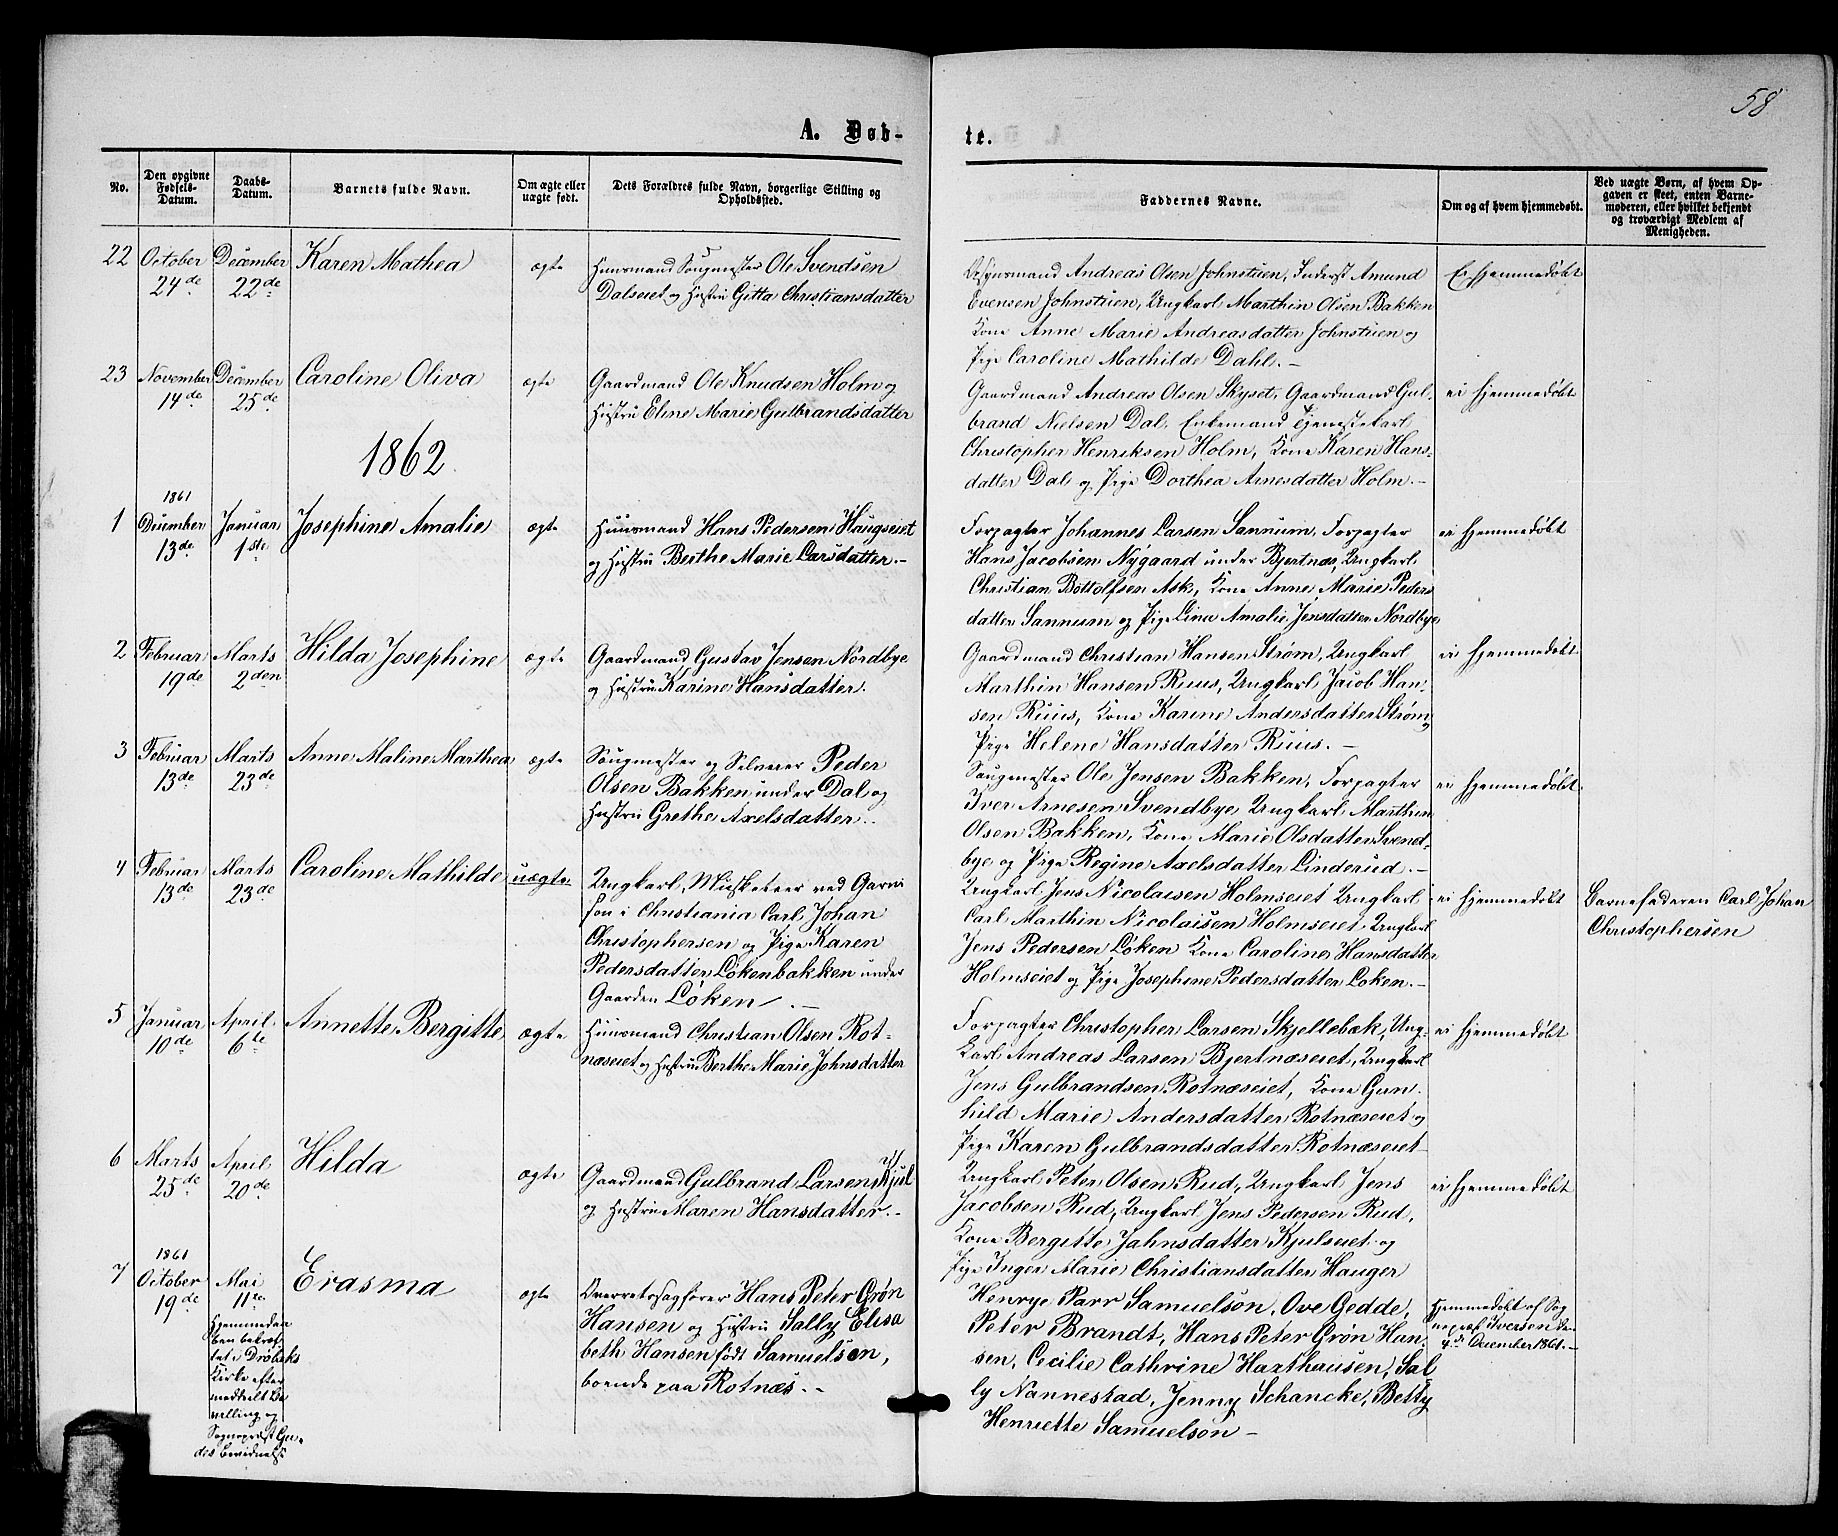 58
A. Døb-
te.
No.
Den opgivne Fødsels-Datum.
Daabs-Datum.
Barnets fulde Navn.
Om ægte eller uægte født.
Dets Forældres fulde Navn, borgerlige Stilling og Opholdssted.
Faddernes Navne.
Om og af hvem hjemmedøbt.
Ved uægte Børn, af hvem Op-
gaven er skeet, enten Barne-
moderen, eller hvilket bekjendt
og troværdigt Medlem af
Menigheden.
22
October
24de
December
22de
Karen Mathea
ægte
Huusmand Saugmester Ole Svendsen
Dalseiet og Hustru Gitta Christiansdatter
Opsynsmand Andreas Olsen Johnstuen, Inderst Amund
Evensen Johnstuen, Ungkarl Marthin Olsen Bakken
Kone Anne Marie Andreasdatter Johnstuen og
Pige Caroline Mathilde Dahl.-
Ei Hjemmedøbt
23
November
14de
December
25de
Caroline Oliva
ægte
Gaardmand Ole Knudsen Holm og
Hustru Eline Marie Gulbrandsdatter
Gaardmand Andreas Olsen Skyset, Gaardmand Gul-
brand Nielsen Dal, Enkemand Tjenestekarl
Christopher Henriksen Holm, Kone Karen Hans-
datter Dal og Pige Dorthea Arnesdatter Holm.-
ei Hjemmedøbt
1862.
1
1861
December
13de
Januar
1ste
Josephine Amalie
ægte
Huusmand Hans Pedersen Haugseiet
og Hustru Berthe Marie Larsdatter.-
Forpagter Johannes Larsen Sannum, Forpagter
Hans Jacobsen Nygaard under Bjertnæs, Ungkarl
Christian Bottolfsen Ask, Kone Anne Marie Peders
datter Sannum og Pige Lina Amalie Jensdatter Nordbye
ei Hjemmedøbt
2
Februar
19de
Marts
2den
Hilda Josephine
ægte
Gaardmand Gustav Jensen Nordbye
og Hustru Karine Hansdatter.
Gaardmand Christian Hansen Strøm, Ungkarl
Marthin Hansen Ruus, Ungkarl Jacob Han-
sen Ruus, Kone Karine Andersdatter Strøm og
Pige Helene Hansdatter Ruus.-
ei Hjemmedøbt
3
Februar
13de
Marts
23de
Anne Maline Marthea
ægte
Saugmester og Selveier Peder
Olsen Bakken under Dal og
Hustru Grethe Axelsdatter.
Saugmester Ole Jensen Bakken, Forpagter
Iver Arnesen Svendbye, Ungkarl Marthin
Olsen Bakken, Kone Marie Olsdatter Svend-
bye og Pige Regine Axelsdatter Linderud.-
ei Hjemmedøbt
4
Februar
13de
Marts
23de
Caroline Mathilde
uægte
Ungkarl, Musketeer ved Garni
son i Christiania Carl Johan
Christophersen og Pige Karen
Pedersdatter Løkenbakken under
Gaarden Løken.-
Ungkarl Jens Nicolaisen Holmseiet Ungkarl
Carl Marthin Nicolaisen Holmseiet, Ungkarl
Jens Pedersen Løken Kone Caroline Hansdatter
Holmseiet og Pige Josephine Pedersdatter Løken.-
ei Hjemmedøbt
Barnefaderen Carl Johan
Christophersen
5
Januar
10de
April
6te
Annette Bergitte
ægte
Huusmand Christian Olsen Rot-
næseiet og Hustru Berthe Marie Johnsdatter
Forpagter Christopher Larsen Skjellebæk, Ung-
karl Andreas Larsen Bjertnæseiet, Ungkarl
Jens Gulbrandsen Rotnæseiet, Kone Gun-
hild Marie Andersdatter Rotnæseiet og
Pige Karen Gulbrandsdatter Rotnæseiet
ei Hjemmedøbt
6
Marts
25de
April
20de
Hilda
ægte
Gaardmand Gulbrand Larsen Kjul
og Hustru Maren Hansdatter.-
Ungkarl Peter Olsen Rud, Ungkarl Jens
Jacobsen Rud, Ungkarl Jens Pedersen Rud,
Kone Bergitte Jahnsdatter Kjulseiet og
Pige Inger Marie Christiansdatter Hauger
ei Hjemmedøbt
7
1861
October
19de
Mai
11te
Hjemmedaa
ben bekræf-
tet i Drøbaks
Kirke efter
meddelt Be
villing og
Sognepræst
Erasma
ægte
Overretssagfører Hans Peter Grøn
Hansen og Hustru Sally Elisa
beth Hansen født Samuelsen,
boende paa Rotnæs.-
Henrye Parr Samuelson, Ove Gedde,
Peter Brandt, Hans Peter Grøn Han-
sen, Cecilie Cathrine Harthausen, Sal
ly Nannestad, Jenny Schancke, Betty
Henriette Samuelson-
Hjemmedøbt af Sog
nepræst Iversen den
4de December 1861.-